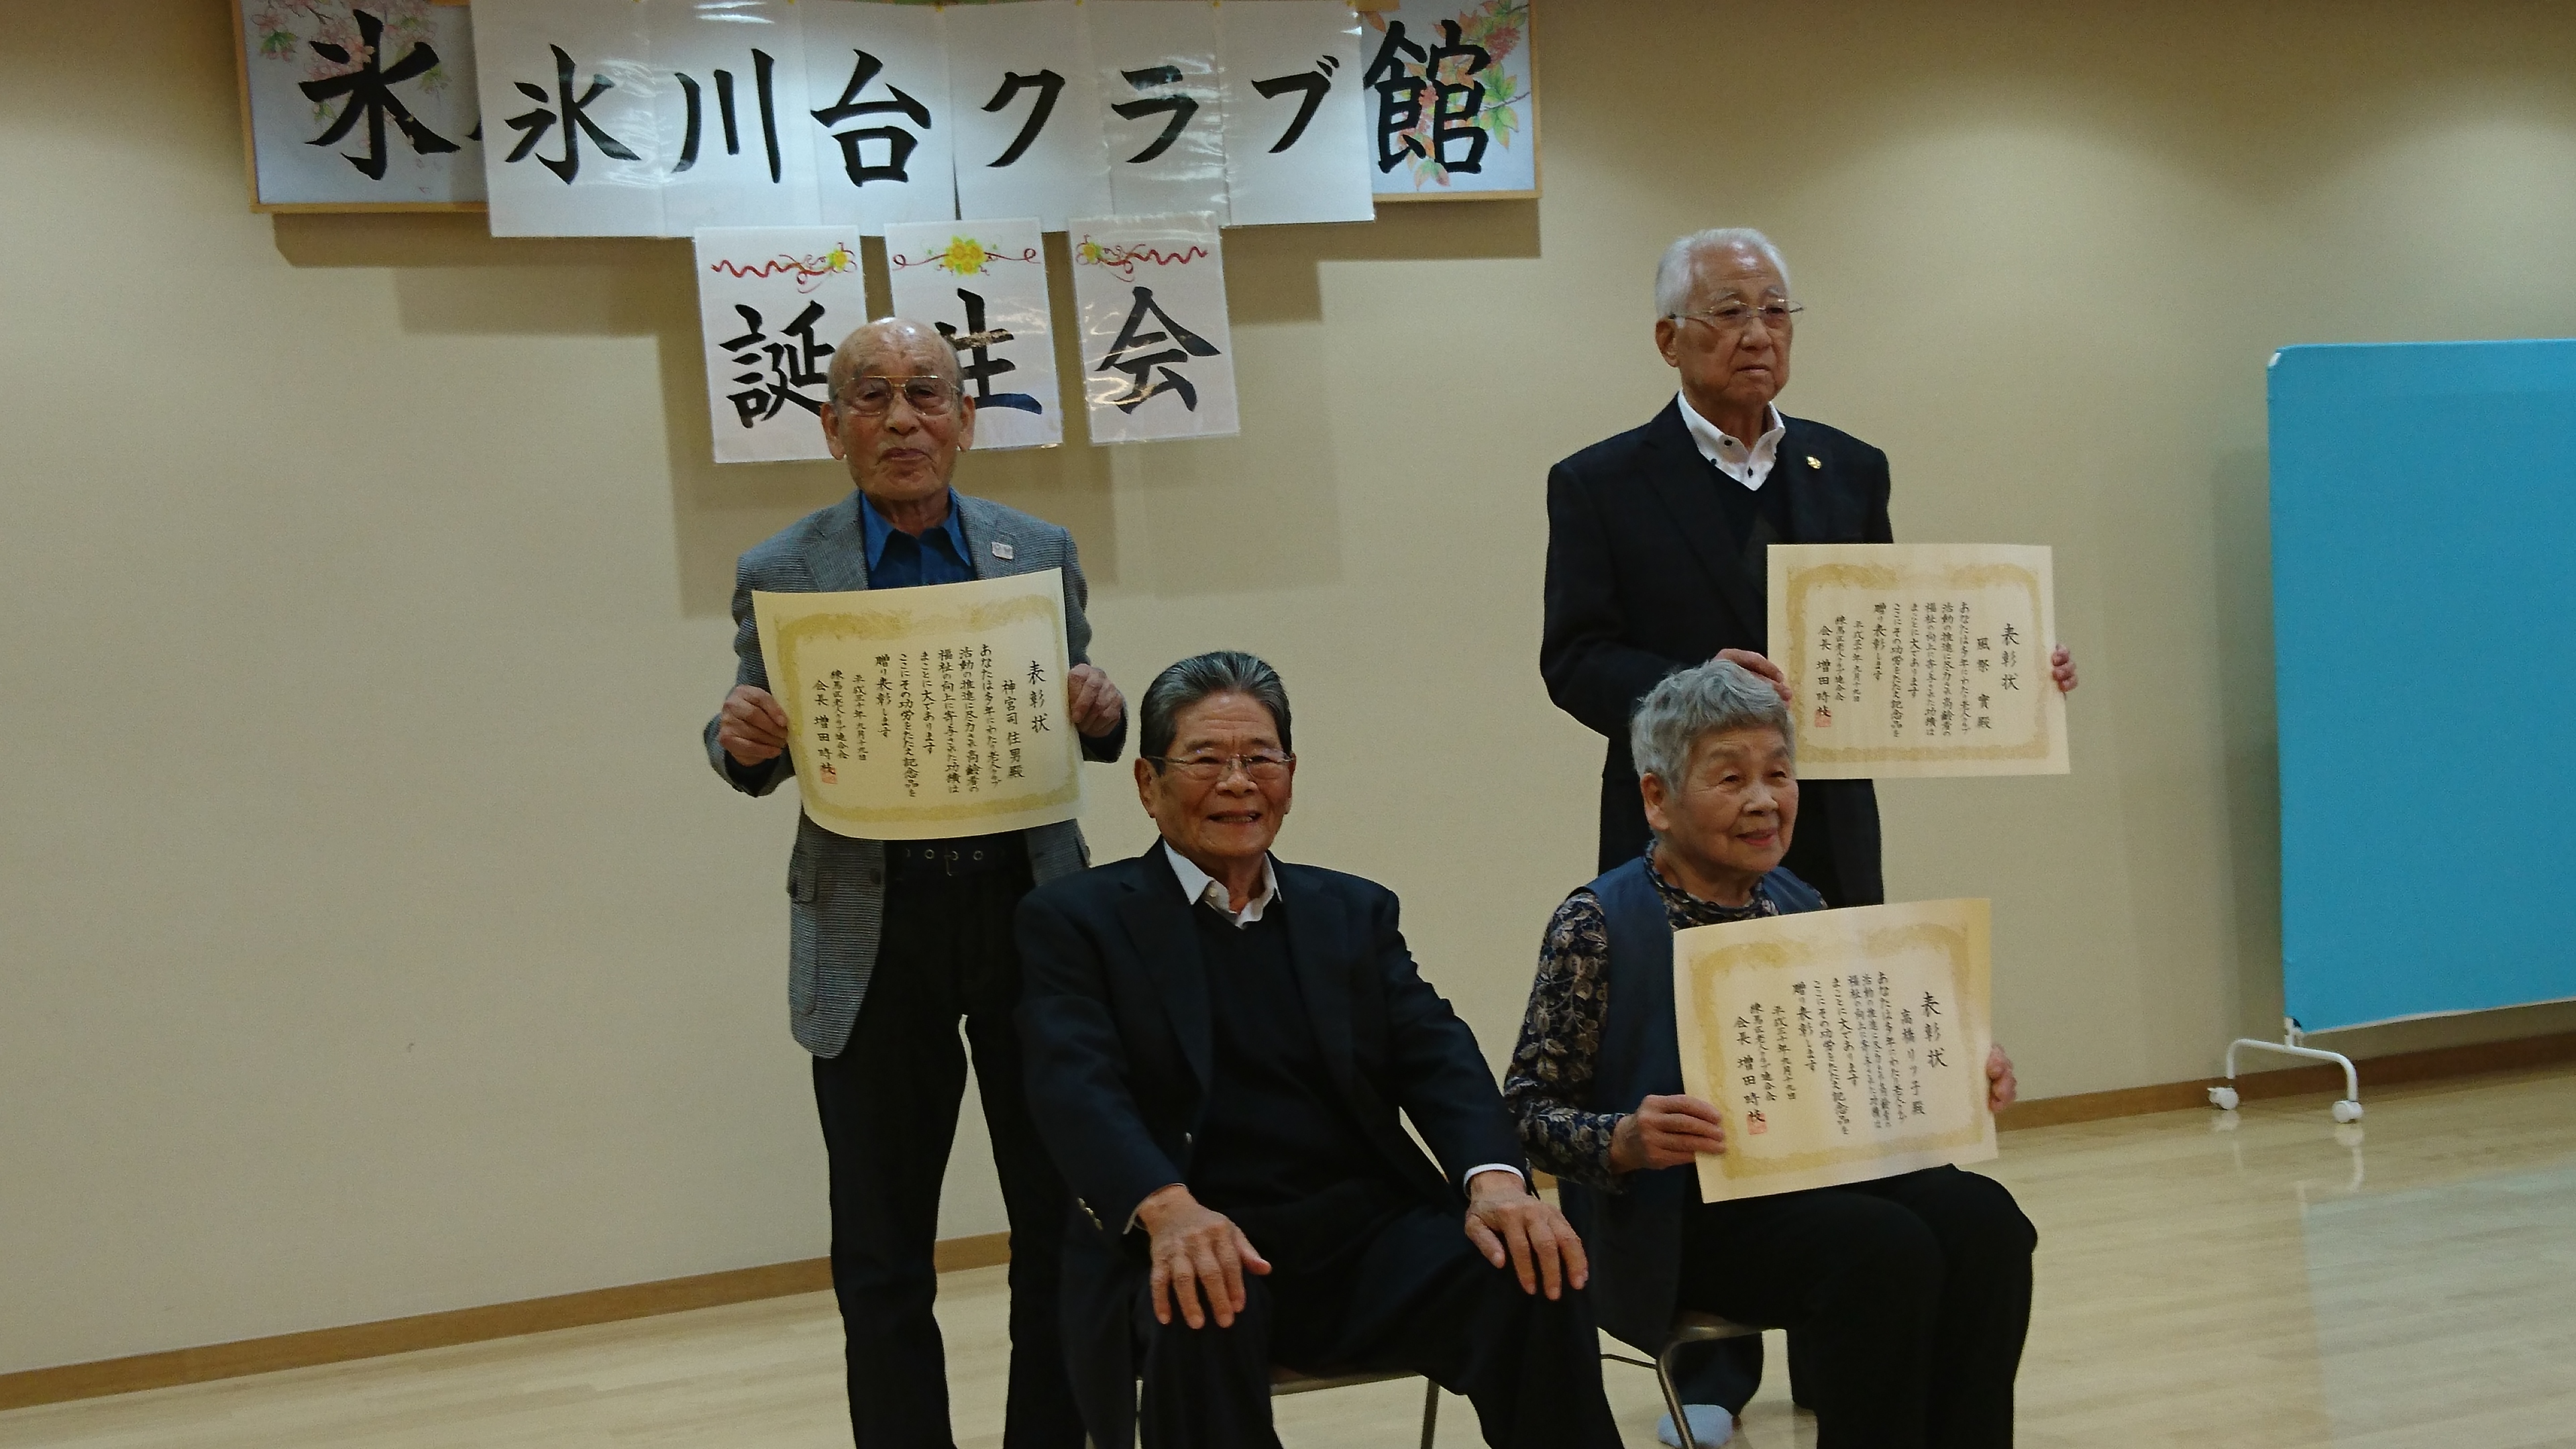 氷
氷川台クラブ
館
誕生会
表彰状
神宮司 住男殿
あなたは多年にわたり老人クラブ
活動の推進に尽力され高齢者の
福祉の向上に寄与された功績は
まことに大であります
ここにその功労をたたえ記念品を
贈り表彰します
平成三十年九月十九日
練馬区老人クラブ連合会
会長 増田時枝
表彰状
風祭 實殿
あなたは多年にわたり老人クラブ
活動の推進に尽力され高齢者の
福祉の向上に寄与された功績は
まことに大であります
ここにその功労をたたえ記念品を
贈り表彰します
平成三十年九月十九日
練馬区老人クラブ連合会
会長 増田時枝
表彰状
高橋リツ子殿
あなたは多年にわたり老人クラブ
活動の推進に尽力され高齢者の
福祉の向上に寄与された功績は
まことに大であります
ここにその功労をたたえ記念品を
贈り表彰します
平成三十年九月十九日
練馬区老人クラブ連合会
会長 増田時枝